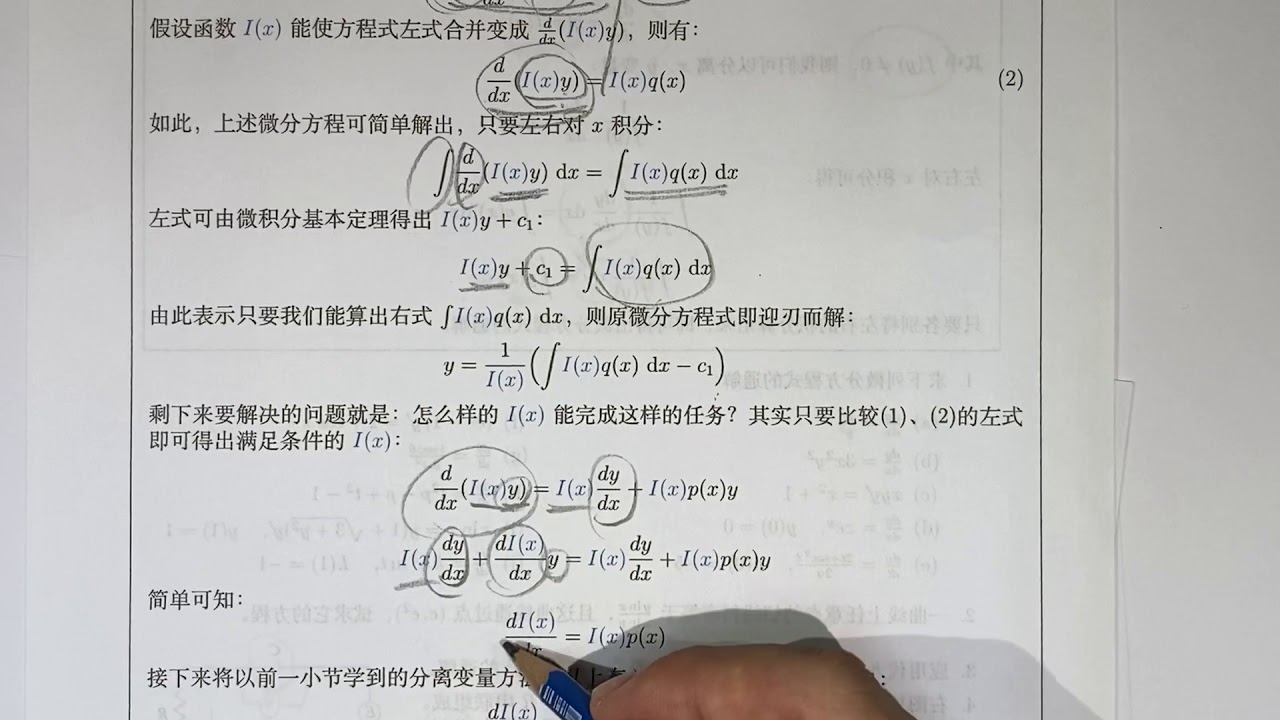 假设函数 I(x) 能使方程式左式合并变成 d/dx(I(x)y)，则有：
d/dx(I(x)y) = I(x)q(x) (2)
如此，上述微分方程可简单解出，只要左右对 x 积分：
∫ d/dx(I(x)y) dx = ∫ I(x)q(x) dx
左式可由微积分基本定理得出 I(x)y + c₁：
I(x)y + c₁ = ∫ I(x)q(x) dx
由此表示只要我们能算出右式 ∫ I(x)q(x) dx，则原微分方程式即迎刃而解：
y = 1/I(x) (∫ I(x)q(x) dx − c₁)
剩下来要解决的问题就是：怎么样的 I(x) 能完成这样的任务？其实只要比较(1)、(2)的左式
即可得出满足条件的 I(x)：
d/dx(I(x)y) = I(x)dy/dx + I(x)p(x)y
I(x)dy/dx + dI(x)/dx y = I(x)dy/dx + I(x)p(x)y
简单可知：
dI(x)/dx = I(x)p(x)
接下来将以前一小节学到的分离变量方
dI(x)